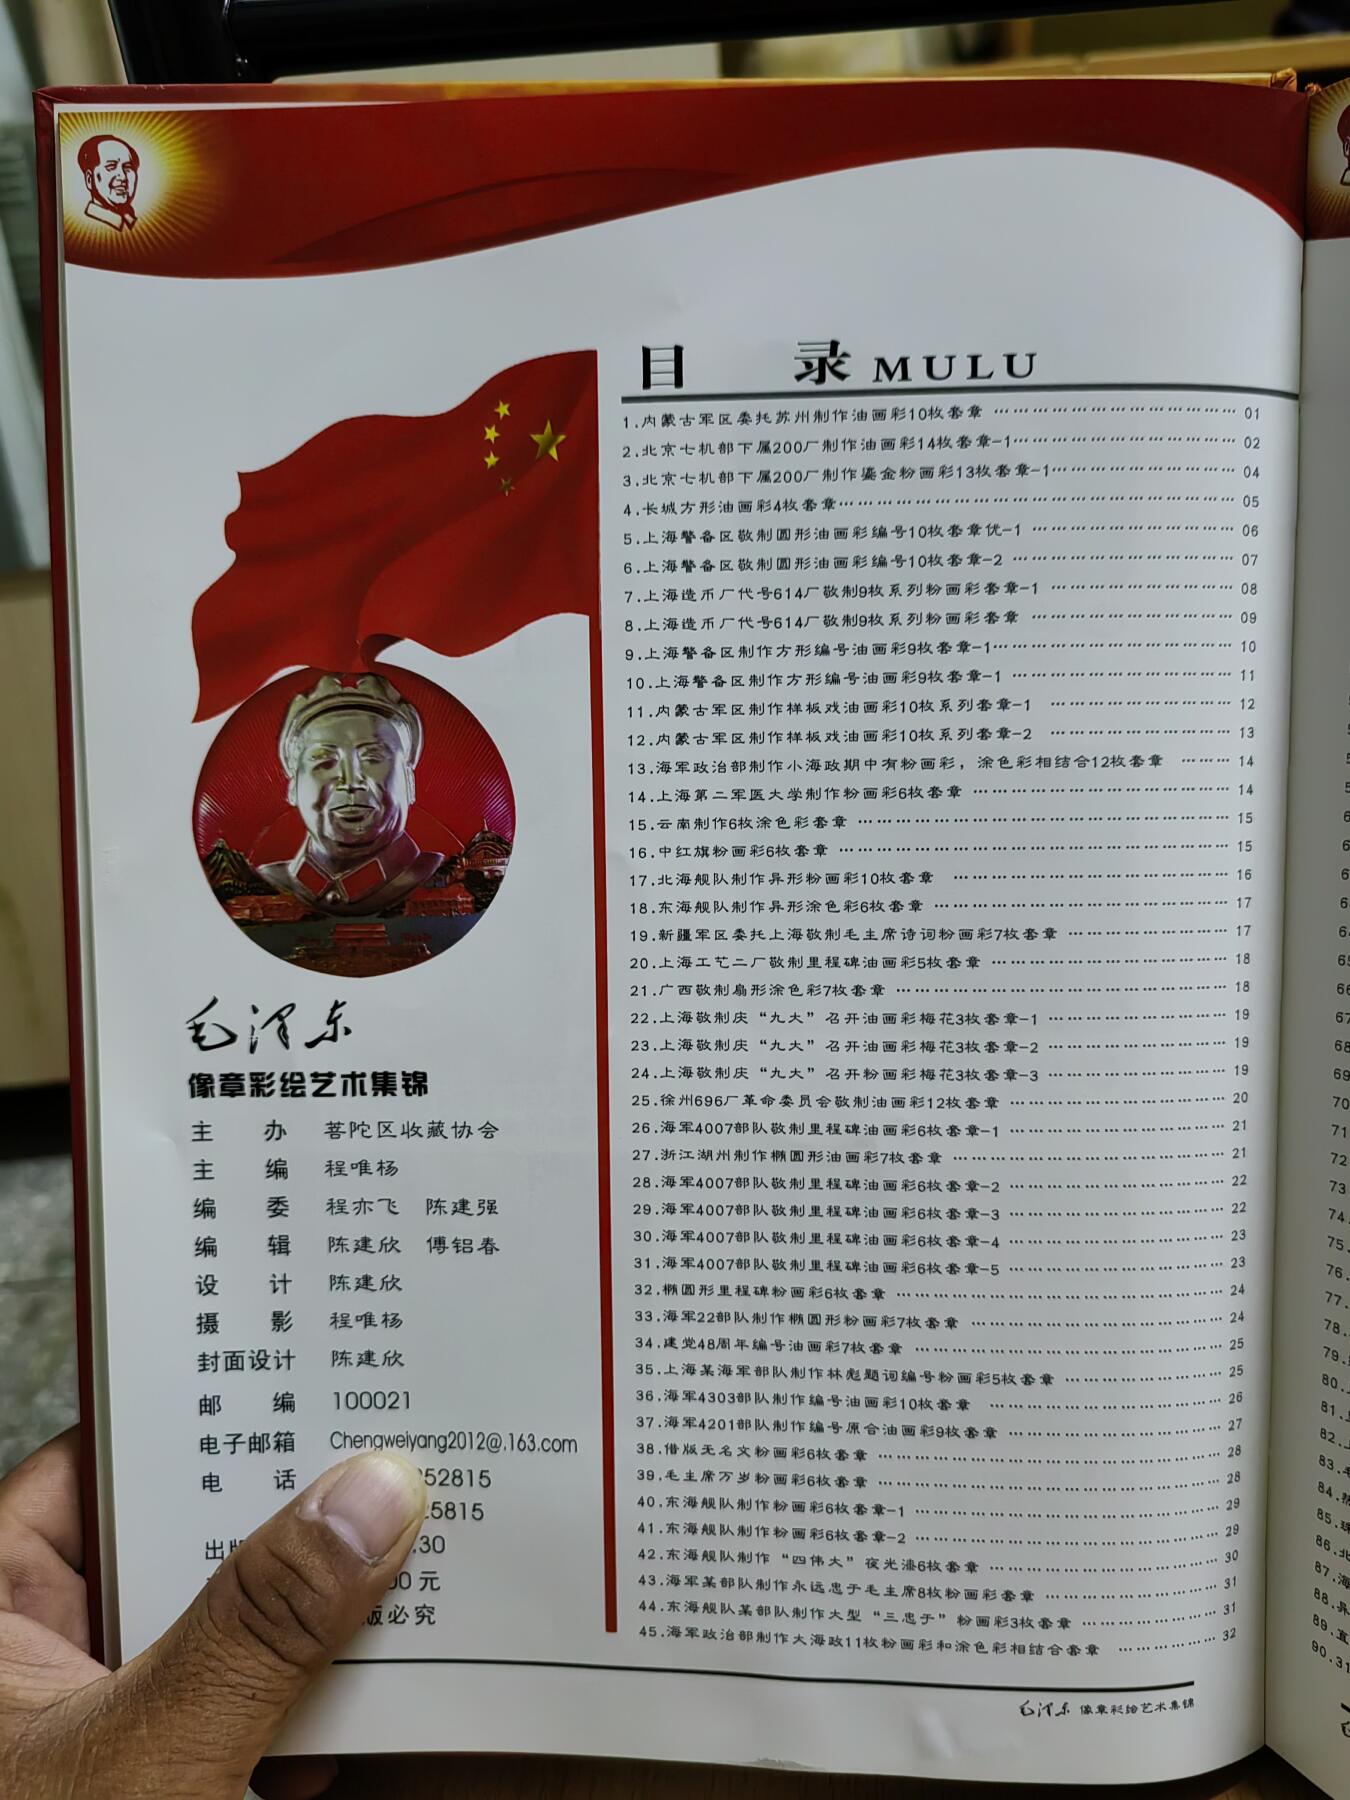 目 录 MULU
1.内蒙古军区委托苏州制作油画彩10枚套章 …………………………… 01
2.北京七机部下属200厂制作油画彩14枚套章-1…………………………… 02
3.北京七机部下属200厂制作鎏金粉画彩13枚套章-1………………………… 04
4.长城方形油画彩4枚套章…………………………………………… 05
5.上海警备区敬制圆形油画彩编号10枚套章优-1 ………………………… 06
6.上海警备区敬制圆形油画彩编号10枚套章-2 ………………………… 07
7.上海造币厂代号614厂敬制9枚系列粉画彩套章-1 ……………………… 08
8.上海造币厂代号614厂敬制9枚系列粉画彩套章 ……………………… 09
9.上海警备区制作方形编号油画彩9枚套章-1…………………………… 10
10.上海警备区制作方形编号油画彩9枚套章-1 ………………………… 11
11.内蒙古军区制作样板戏油画彩10枚系列套章-1 …………………… 12
12.内蒙古军区制作样板戏油画彩10枚系列套章-2 …………………… 13
13.海军政治部制作小海政期中有粉画彩，涂色彩相结合12枚套章 ……… 14
14.上海第二军医大学制作粉画彩6枚套章 ……………………………… 14
15.云南制作6枚涂色彩套章 ……………………………………………… 15
16.中红旗粉画彩6枚套章 ………………………………………………… 15
17.北海舰队制作异形粉画彩10枚套章 ………………………………… 16
18.东海舰队制作异形涂色彩6枚套章 …………………………………… 17
19.新疆军区委托上海敬制毛主席诗词粉画彩7枚套章 ………………… 17
20.上海工艺二厂敬制里程碑油画彩5枚套章 …………………………… 18
21.广西敬制扇形涂色彩7枚套章 ………………………………………… 18
22.上海敬制庆“九大”召开油画彩梅花3枚套章-1 ……………………… 19
23.上海敬制庆“九大”召开油画彩梅花3枚套章-2 ……………………… 19
24.上海敬制庆“九大”召开粉画彩梅花3枚套章-3 ……………………… 19
25.徐州696厂革命委员会敬制油画彩12枚套章 ………………………… 20
26.海军4007部队敬制里程碑油画彩6枚套章-1 ………………………… 21
27.浙江湖州制作椭圆形油画彩7枚套章 ………………………………… 21
28.海军4007部队敬制里程碑油画彩6枚套章-2 ………………………… 22
29.海军4007部队敬制里程碑油画彩6枚套章-3 ………………………… 22
30.海军4007部队敬制里程碑油画彩6枚套章-4 ………………………… 23
31.海军4007部队敬制里程碑油画彩6枚套章-5 ………………………… 23
32.椭圆形里程碑粉画彩6枚套章 ………………………………………… 24
33.海军22部队制作椭圆形粉画彩7枚套章 ……………………………… 24
34.建党48周年编号油画彩7枚套章 ……………………………………… 25
35.上海某海军部队制作林彪题词编号粉画彩5枚套章 ………………… 25
36.海军4303部队制作编号油画彩10枚套章 …………………………… 26
37.海军4201部队制作编号原合油画彩9枚套章 ………………………… 27
38.借版无名文粉画彩6枚套章 …………………………………………… 28
39.毛主席万岁粉画彩6枚套章 …………………………………………… 28
40.东海舰队制作粉画彩6枚套章-1 ……………………………………… 29
41.东海舰队制作粉画彩6枚套章-2 ……………………………………… 29
42.东海舰队制作“四伟大”夜光漆6枚套章 ……………………………… 30
43.海军某部队制作永远忠于毛主席8枚粉画彩套章 …………………… 31
44.东海舰队某部队制作大型“三忠于”粉画彩3枚套章 ………………… 31
45.海军政治部制作大海政11枚粉画彩和涂色彩相结合套章 …………… 32
毛泽东
像章彩绘艺术集锦
主 办 菩陀区收藏协会
主 编 程唯杨
编 委 程亦飞 陈建强
编 辑 陈建欣 傅铝春
设 计 陈建欣
摄 影 程唯杨
封面设计 陈建欣
邮 编 100021
电子邮箱 Chengweiyang2012@.163.com
电 话 52815
25815
出版 .30
00元
版必究
毛泽东 像章彩绘艺术集锦